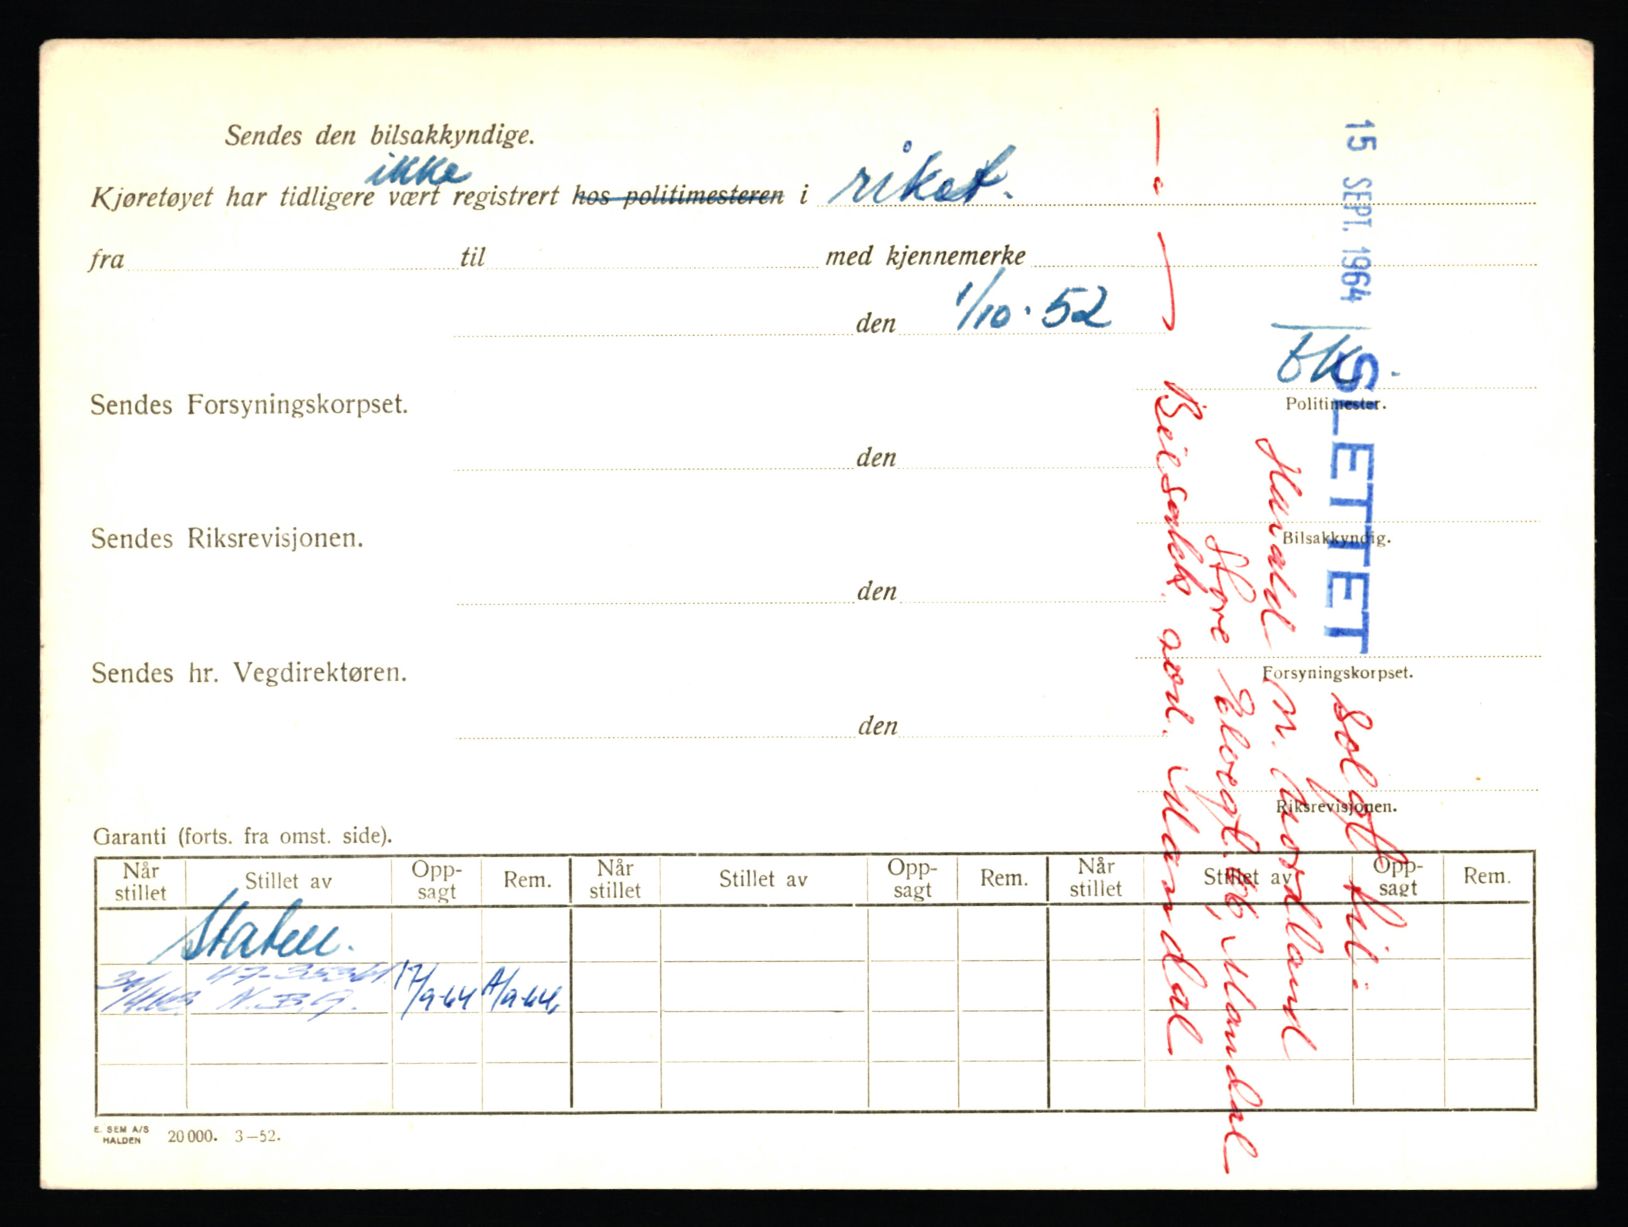 Sendes den bilsakkyndige.
Kjøretøyet har tidligere ikke vært registrert hos politimesteren i riket.
fra til med kjennemerke
den 1/10. 52
Politimester.
Sendes Forsyningskorpset.
den
Bilsakkyndig.
Sendes Riksrevisjonen.
den
Forsyningskorpset.
Sendes hr. Vegdirektøren.
den
Riksrevisjonen.
Garanti (forts. fra omst. side).
Når stillet Stillet av Opp-sagt Rem. Når stillet Stillet av Opp-sagt Rem. Når stillet Stillet av Opp-sagt Rem.
Staten.
N.B.G. 17/9-64 /9-64
E. SEM A/S
HALDEN
20 000. 3—52.
15 SEPT. 1964
SLETTET
Solgt til:
Harald N. Nordland
Store Elvegt. Mandal
Mandal